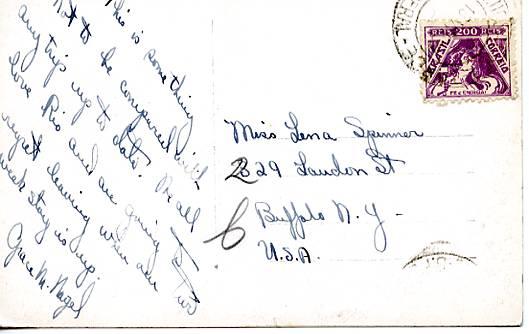 This is something
not to be compared with
any trip up to date. We all
love Rio and are going to
regret leaving when our two
week stay is up.
Grace M. Nagel
REIS 200 REIS
BRASIL
CORREIO
Miss Lena Spinner
329 Landon St
Buffalo N. Y.
U.S.A.
6